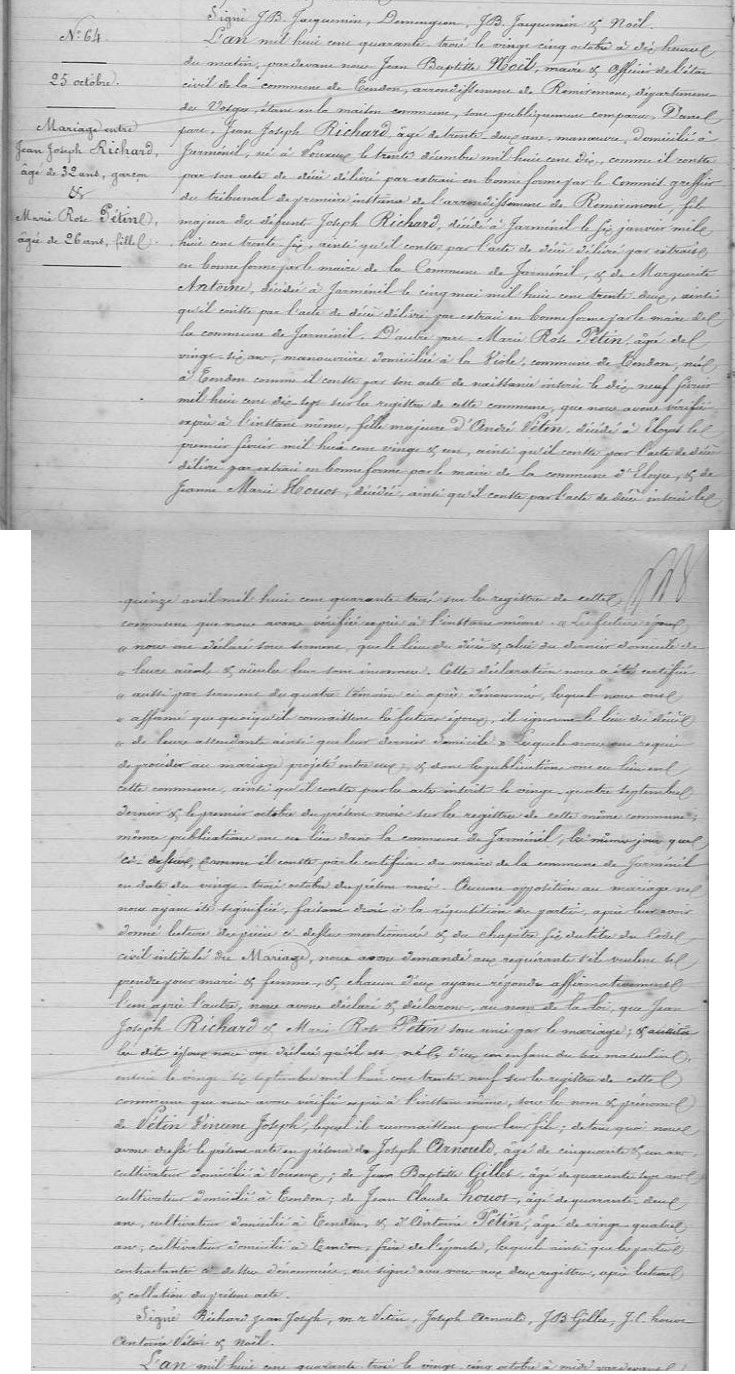 Signé J.B. Jacquemin, Demengeon, J.B. Jacquemin & Noël.
N° 64
25 octobre.
Mariage entre
Jean Joseph Richard,
âgé de 32 ans, garçon
&
Marie Rose Pétin,
âgée de 26 ans, fille.
L'an mil huit cent quarante-trois le vingt cinq octobre à dix heures
du matin, pardevant nous Jean Baptiste Noël, maire & officier de l'état
civil de la commune de Tendon, arrondissement de Remiremont, département
des Vosges, étant en la maison commune, sont publiquement comparus, D'une
part, Jean Joseph Richard, âgé de trente deux ans, manœuvre, domicilié à
Jarménil, né à Vouxeux le trente décembre mil huit cent dix, comme il conste
par son acte de délivré par extrait en bonne forme par le Commis greffier
du tribunal de première instance de l'arrondissement de Remiremont, fils
majeur de défunt Joseph Richard, décédé à Jarménil le six janvier mil
huit cent trente six, ainsi qu'il conste par l'acte de décès délivré par extrait
en bonne forme par le maire de la Commune de Jarménil, & de Marguerite
Antoine, décédée à Jarménil le cinq mai mil huit cent trente deux, ainsi
qu'il conste par l'acte de décès délivré par extrait en bonne forme par le maire de
la commune de Jarménil. D'autre part Marie Rose Pétin, âgée de
vingt-six ans, manouvrière domiciliée à la Viole, commune de Tendon, née
à Tendon comme il conste par son acte de naissance inscrit le dix neuf février
mil huit cent dix-sept sur le registre de cette commune, que nous avons vérifié
exprès à l'instant même, fille majeure d'André Pétin, décédé à Eloyes le
premier février mil huit cent vingt & un, ainsi qu'il conste par l'acte de décès
délivré par extrait en bonne forme par le maire de la commune d'Eloyes, & de
Jeanne Marie Houot, décédée, ainsi qu'il conste par l'acte de décès inscrit le
quinze avril mil huit cent quarante trois sur le registre de cette
commune que nous avons vérifié exprès à l'instant même. « Les futurs époux
« nous ont déclaré sous serment, que le lieu du décès & celui du dernier domicile de
« leurs aïeuls & aïeules leur sont inconnus. Cette déclaration nous a été certifiée
« aussi par serment des quatre témoins ci après dénommés, lesquels nous ont
« affirmé que quoiqu'ils connaissent les futurs époux, ils ignorent le lieu du décès
« de leurs ascendants ainsi que leur dernier domicile. » Lesquels nous ont requis
de procéder au mariage projeté entre eux, & dont les publications ont eu lieu en
cette commune, ainsi qu'il conste par les actes inscrits le vingt-quatre septembre
dernier & le premier octobre du présent mois sur le registre de cette même commune;
même publication ont eu lieu dans la commune de Jarménil, les mêmes jours que
ci dessus, comme il conste par le certificat du maire de la commune de Jarménil
en date du vingt-trois octobre du présent mois. Aucune opposition au mariage ne
nous ayant été signifiée, faisant droit à la réquisition des parties, après leur avoir
donné lecture des pièces ci dessus mentionnées & du chapitre six du titre du Code
civil intitulé du Mariage, nous avons demandé aux requérants s'ils veulent se
prendre pour mari & femme, & chacun d'eux ayant répondu affirmativement
l'un après l'autre, nous avons déclaré & déclarons, au nom de la loi, que Jean
Joseph Richard & Marie Rose Pétin sont unis par le mariage; & aussitôt
les dits époux nous ont déclaré qu'il est né d'eux un enfant du sexe masculin,
inscrit le vingt six septembre mil huit cent trente neuf sur le registre de cette
commune que nous avons vérifié exprès à l'instant même, sous le nom & prénoms
de Pétin Vincent Joseph, lequel ils reconnaissent pour leur fils; de tout quoi nous
avons dressé le présent acte en présence de Joseph Arnould, âgé de cinquante & un ans
cultivateur domicilié à Vouxeux; de Jean Baptiste Gilles, âgé de quarante sept ans
cultivateur domicilié à Tendon; de Jean Claude houot, âgé de quarante-deux
ans, cultivateur domicilié à Tendon, & d'Antoine Pétin, âgé de vingt-quatre
ans, cultivateur domicilié à Tendon, frère de l'épouse, lesquels ainsi que les parties
contractantes ci dessus dénommées, ont signé avec nous aux deux registres, après lecture
& collation du présent acte.
Signé Richard jean joseph, m r Petin, Joseph Arnould, J B Gilles, J. C. houot
Antoine Pétin & Noël.
L'an mil huit cent quarante-trois le vingt-cinq octobre à midi pardevant